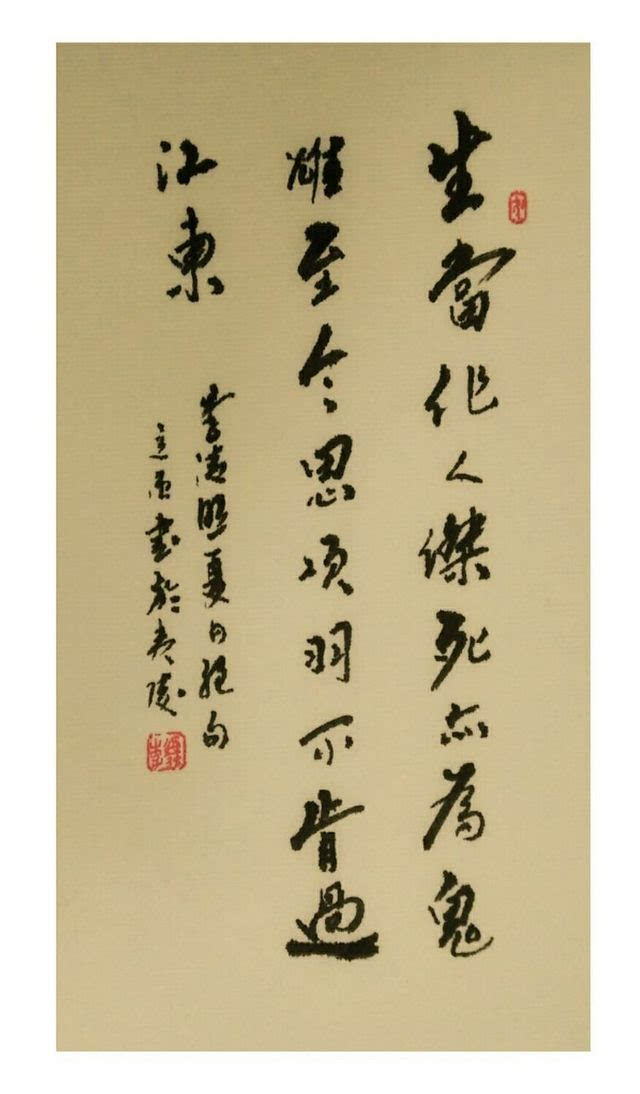 生當作人傑死亦為鬼
雄至今思項羽不肯過
江東
李清照夏日絕句
立原書於夷陵